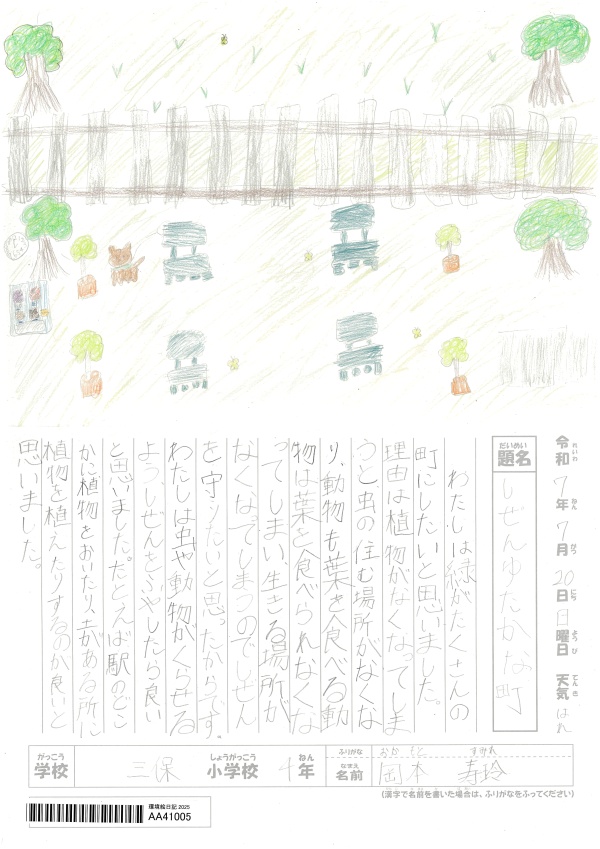 令和7年7月20日日曜日 天気 はれ
題名 しぜんゆたかな町
わたしは緑がたくさんの
町にしたいと思いました。
理由は植物がなくなってしま
うと虫の住む場所がなくな
り、動物も葉を食べる動
物は葉を食べられなくな
ってしまい、生きる場所が
なくなってしまうのでしぜん
を守りたいと思ったからです。
わたしは虫や動物がくらせる
よう、しぜんをふやしたら良い
と思いました。たとえば駅のどこ
かに植物をおいたり、土がある所に
植物を植えたりするのが良いと
思いました。
学校 三保 小学校 4年
ふりがな おかもと すみれ
名前 岡本 寿玲
(漢字で名前を書いた場合は、ふりがなをふってください)
環境絵日記 2025
AA41005